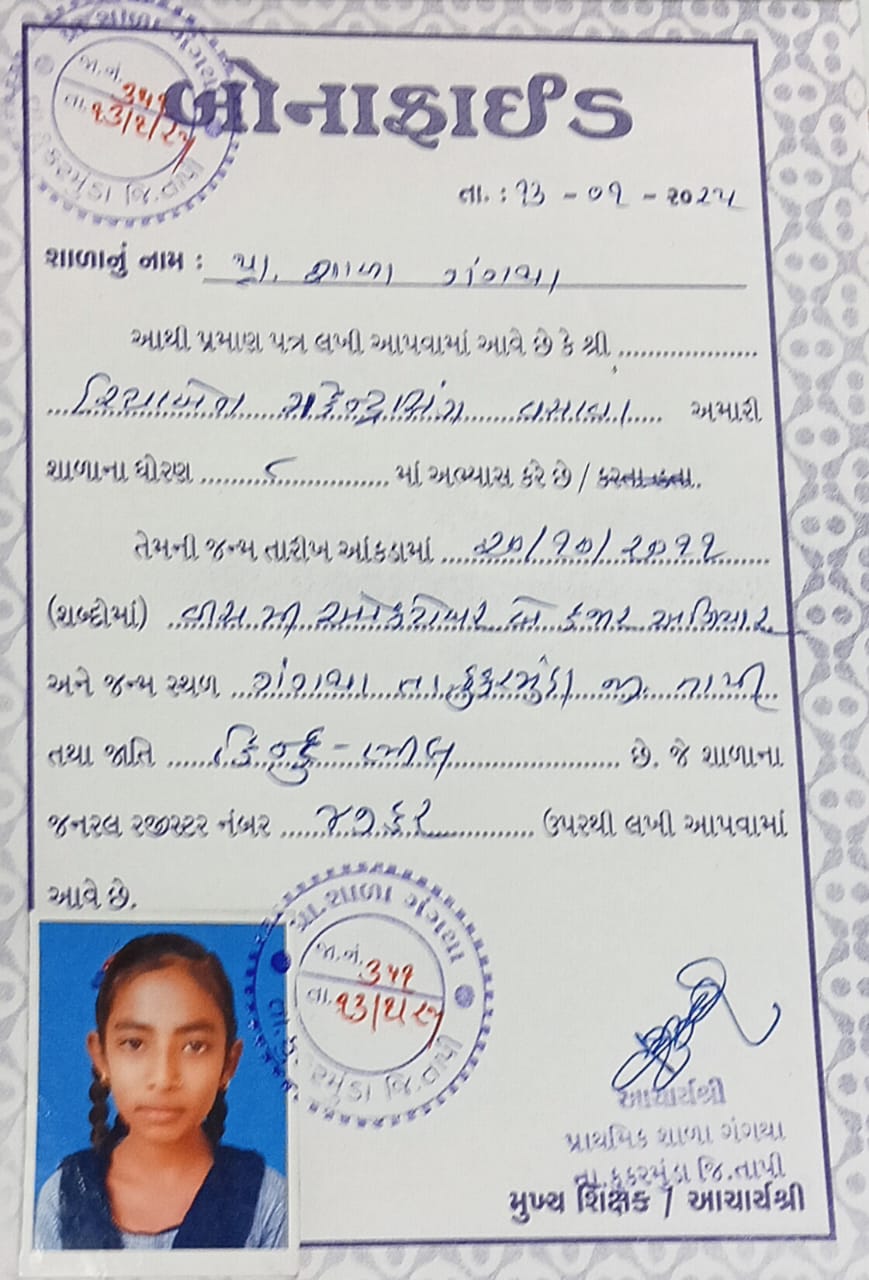 પ્રા. શાળા ગંગથા
જા.નં. ૩૫૧
તા. ૧૩/૧/૨૫
તા. કુકરમુંડા જિ. તાપી
બોનાફાઈડ
તા. : ૧૩ - ૦૧ - ૨૦૨૫
શાળાનું નામ : પ્રા. શાળા ગંગથા
આથી પ્રમાણ પત્ર લખી આપવામાં આવે છે કે શ્રી
વસાવા અમારી
શાળાના ધોરણ ૮ માં અભ્યાસ કરે છે / કરતા હતા.
તેમની જન્મ તારીખ આંકડામાં ૨૦/૧૦/૨૦૧૧
(શબ્દોમાં) વીસમી ઓક્ટોબર બે હજાર અગિયાર
અને જન્મ સ્થળ ગંગથા તા. કુકરમુંડા જી. તાપી
તથા જાતિ હિન્દુ - ભીલ છે. જે શાળાના
જનરલ રજીસ્ટર નંબર ઉપરથી લખી આપવામાં
આવે છે.
પ્રા. શાળા ગંગથા
જા.નં. ૩૫૧
તા. ૧૩/૧/૨૫
તા. કુકરમુંડા જિ. તાપી
આચાર્યશ્રી
પ્રાથમિક શાળા ગંગથા
તા. કુકરમુંડા જિ. તાપી
મુખ્ય શિક્ષક / આચાર્યશ્રી